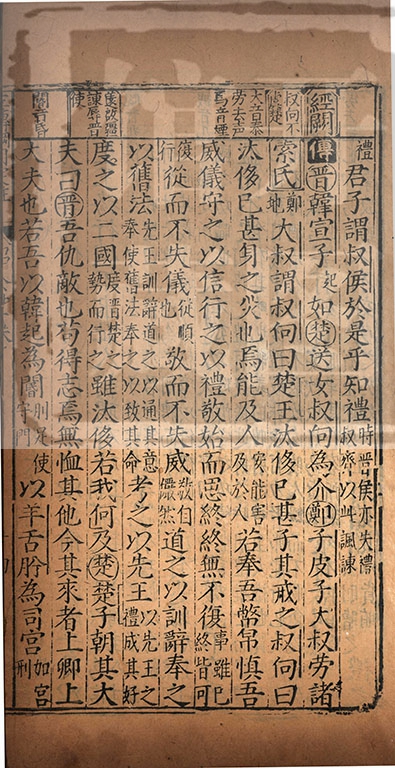 禮君子謂叔侯於是乎知禮時晉侯亦失禮叔齊以此諷諫
經闕
傳晉韓宣子起如楚送女叔向為介鄭子皮子大叔勞諸
叔向不
大音泰
勞去声
索氏鄭地大叔謂叔向曰楚王汰侈已甚子其戒之叔向曰
焉音煙
汰侈已甚身之災也焉能及人安能害及於人若奉吾幣帛慎吾
威儀守之以信行之以禮敬始而思終終無不復事雖已終皆可
復行從而不失儀從順也敬而不失威敬自儼然道之以訓辭奉之
以舊法先王訓辭道之以通其意奉使舊法奉之以致其命考之以先王以先王之禮成其好
諫辱晉
使
度之以二國度晉楚之勢而行之雖汰侈若我何及楚楚子朝其大
夫曰晉吾仇敵也苟得志焉無恤其他今其來者上卿上
閽音昏
大夫也若吾以韓起為閽刖足使守門以羊舌肸為司宮加宮刑